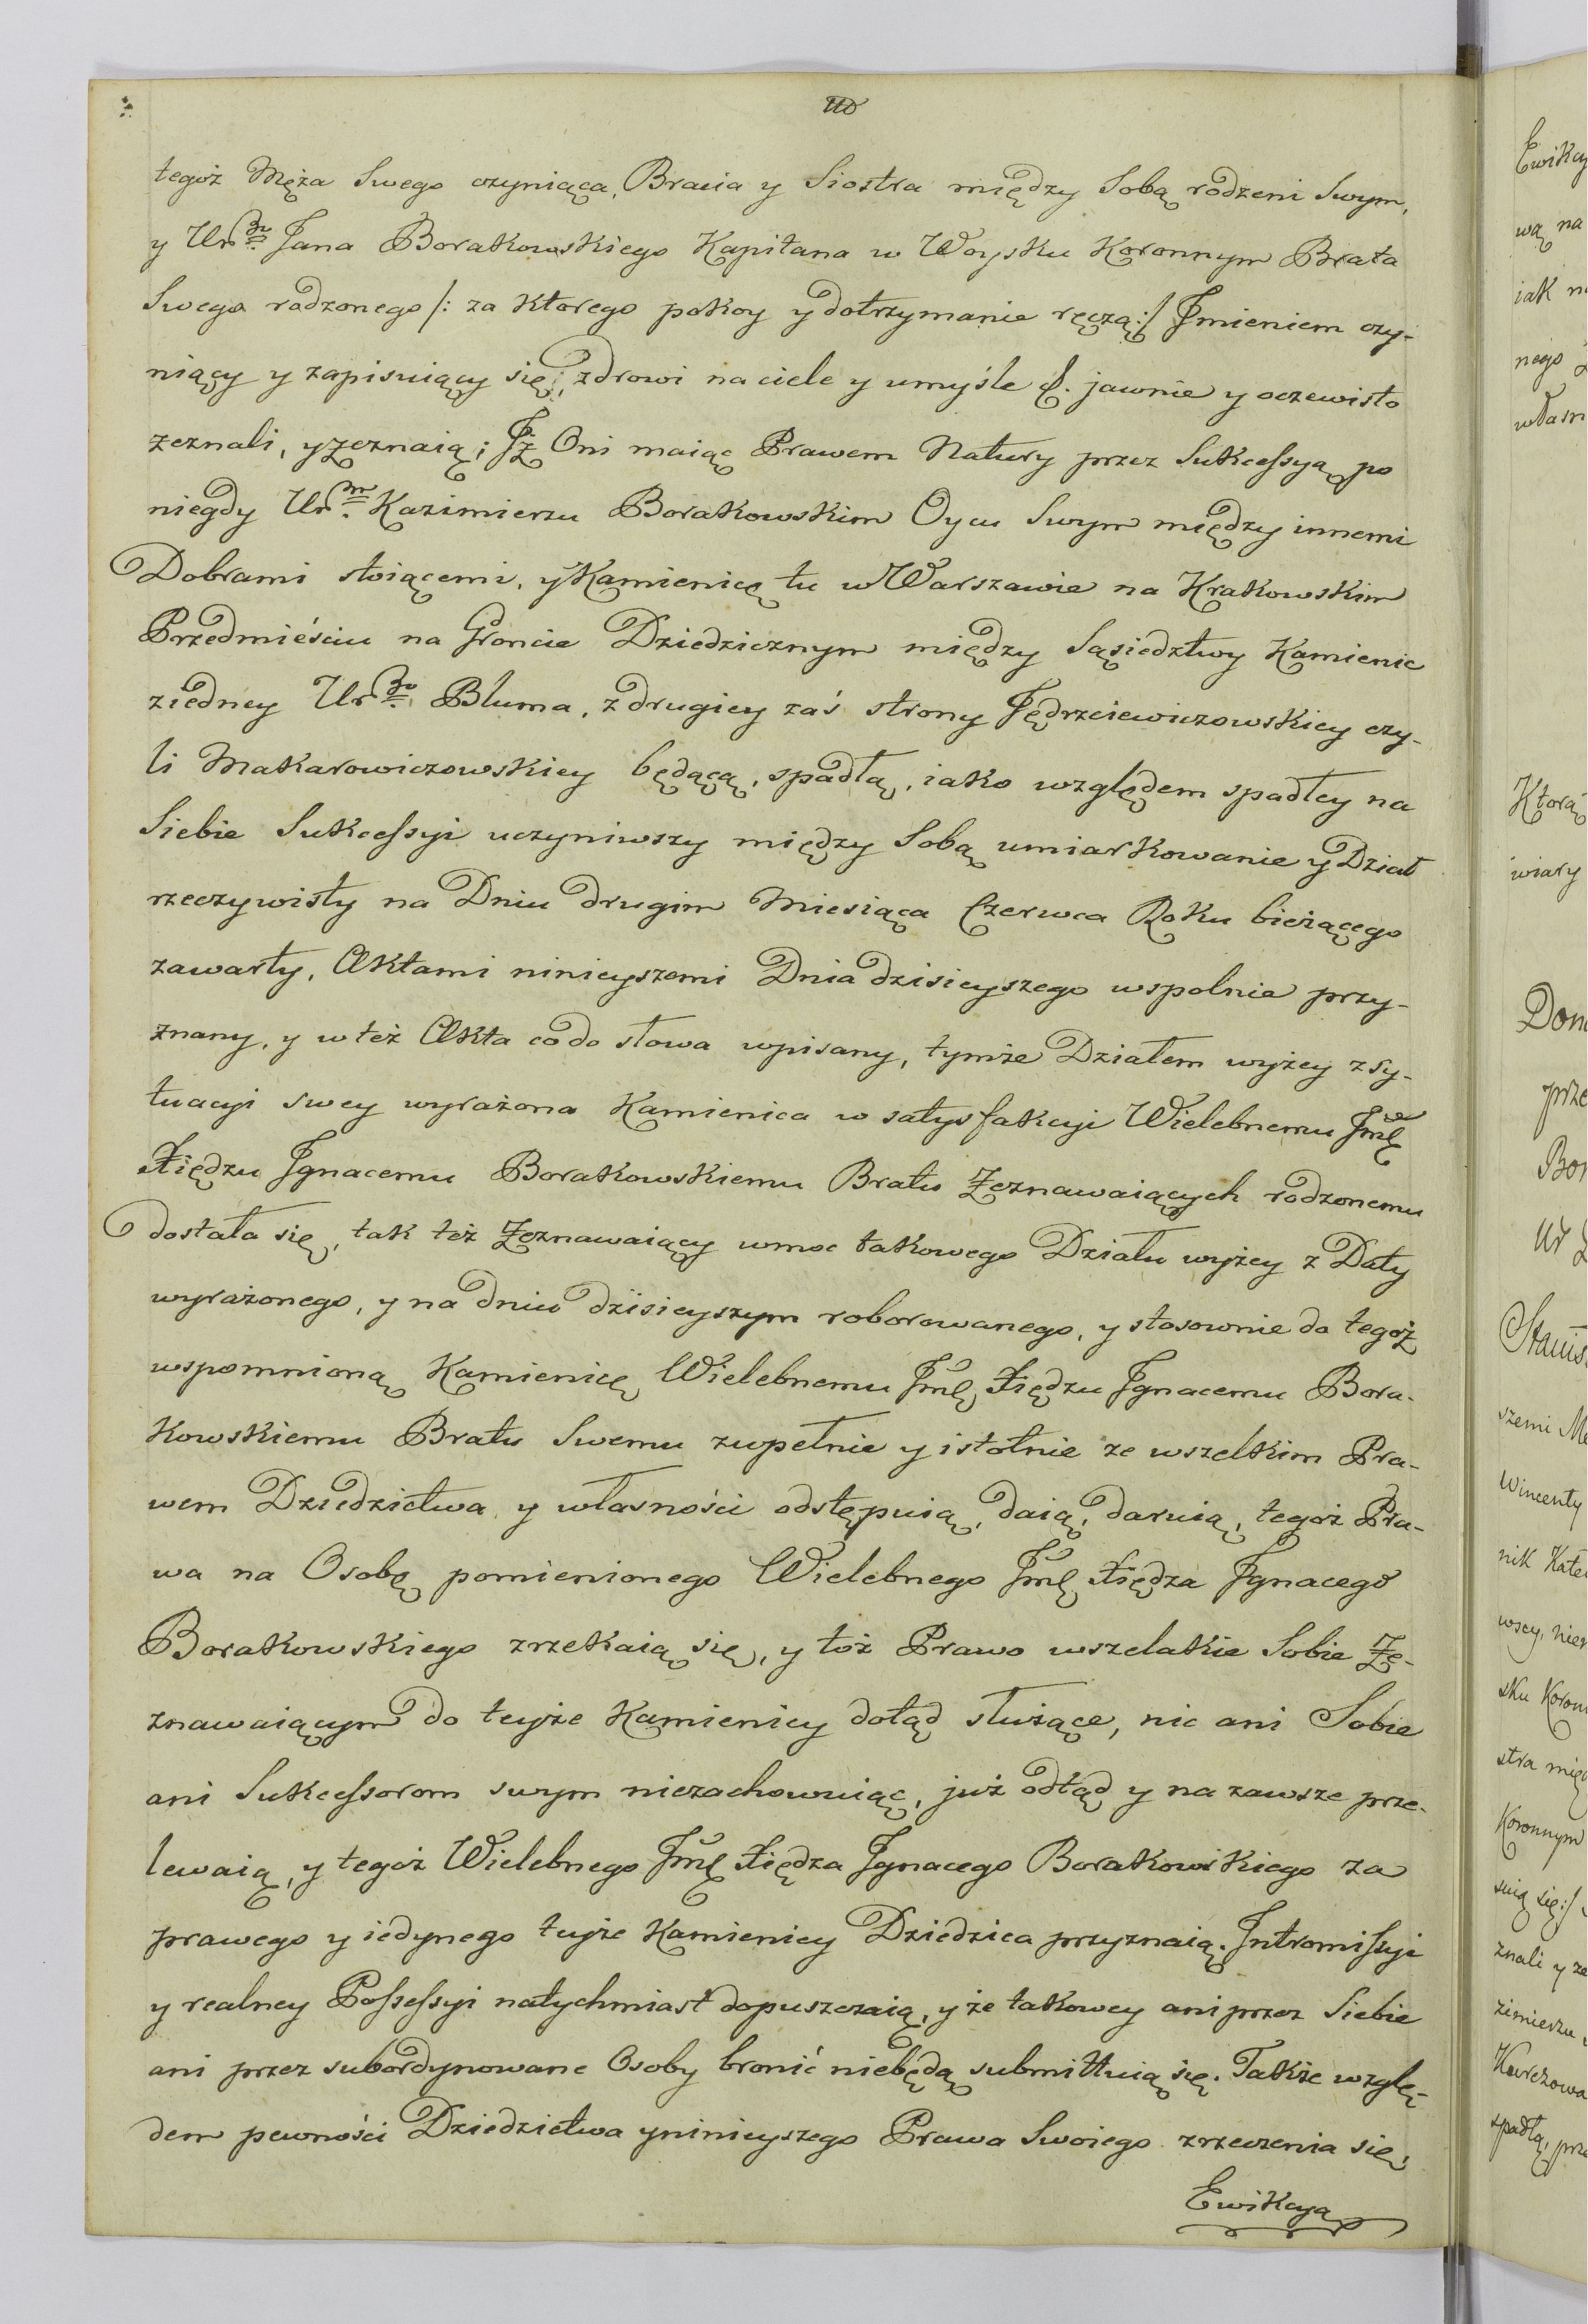 tegoż Męża Swego czyniąca, Bracia y Siostra między Sobą rodzeni Swym,
y Urgo Jana Borakowskiego Kapitana w Woysku Koronnym Brata
Swego rodzonego /: za ktorego pokoy y dotrzymanie ręczą :/ Jmieniem czy-
niący y zapisuiący się; zdrowi na ciele y umyśle &. jawnie y oczewisto
zeznali, y zeznaią; Jż Oni maiąc Prawem Natury przez Sukcessyą po
niegdy Urm Kazimierzu Borakowskim Oycu Swym między innemi
Dobrami stoiącemi, y Kamienicę tu w Warszawie na Krakowskim
Przedmieściu na Groncie Dziedzicznym między Sąsiedztwy Kamienic
z iedney Urgo Bluma, z drugiey zaś strony Jędrzeiewiczowskiey czy-
li Makarowiczowskiey będącą, spadłą, iako względem spadłey na
Siebie Sukcessyi uczyniwszy między Sobą umiarkowanie y Dział
rzeczywisty na Dniu drugim Miesiąca Czerwca Roku bieżącego
zawarty, Aktami ninieyszemi Dnia dzisieyszego wspolnie przy-
znany, y w też Akta co do słowa wpisany, tymże Działem wyżey z sy-
tuacyi swey wyrażona Kamienica w satysfakcyi Wielebnemu Jmę
Xiędzu Jgnacemu Borakowskiemu Bratu Zeznawaiących rodzonemu
dostała się, tak też Zeznawaiący wmoc takowego Działu wyżey z Daty
wyrażonego, y na dniu dzisieyszym roborowanego, y stosownie do tegoż
wspomnioną Kamienicę Wielebnemu Jmę Xiędzu Jgnacemu Bora-
kowskiemu Bratu Swemu zupełnie y istotnie ze wszelkim Pra-
wem Dziedzictwa y własności odstępuią, daią, daruią, tegoż Pra-
wa na Osobę pomienionego Wielebnego Jmę Xiędza Jgnacego
Borakowskiego zrzekaią się, y toż Prawo wszelakie Sobie Ze-
znawaiącym do teyże Kamienicy dotąd służące, nic ani Sobie
ani Sukcessorom swym niezachowuiąc, już odtąd y na zawsze prze-
lewaią, y tegoż Wielebnego Jmę Xiędza Jgnacego Borakowskiego za
prawego y iedynego teyże Kamienicy Dziedzica przyznaią. Jntromissyi
y realney Possessyi natychmiast dopuszczaią, y że takowey ani przez Siebie
ani przez subordynowane Osoby bronić niebędą submittuią się. Także wzglę-
dem pewności Dziedzictwa y ninieyszego Prawa Swoiego zrzeczenia się,
Ewikcyą